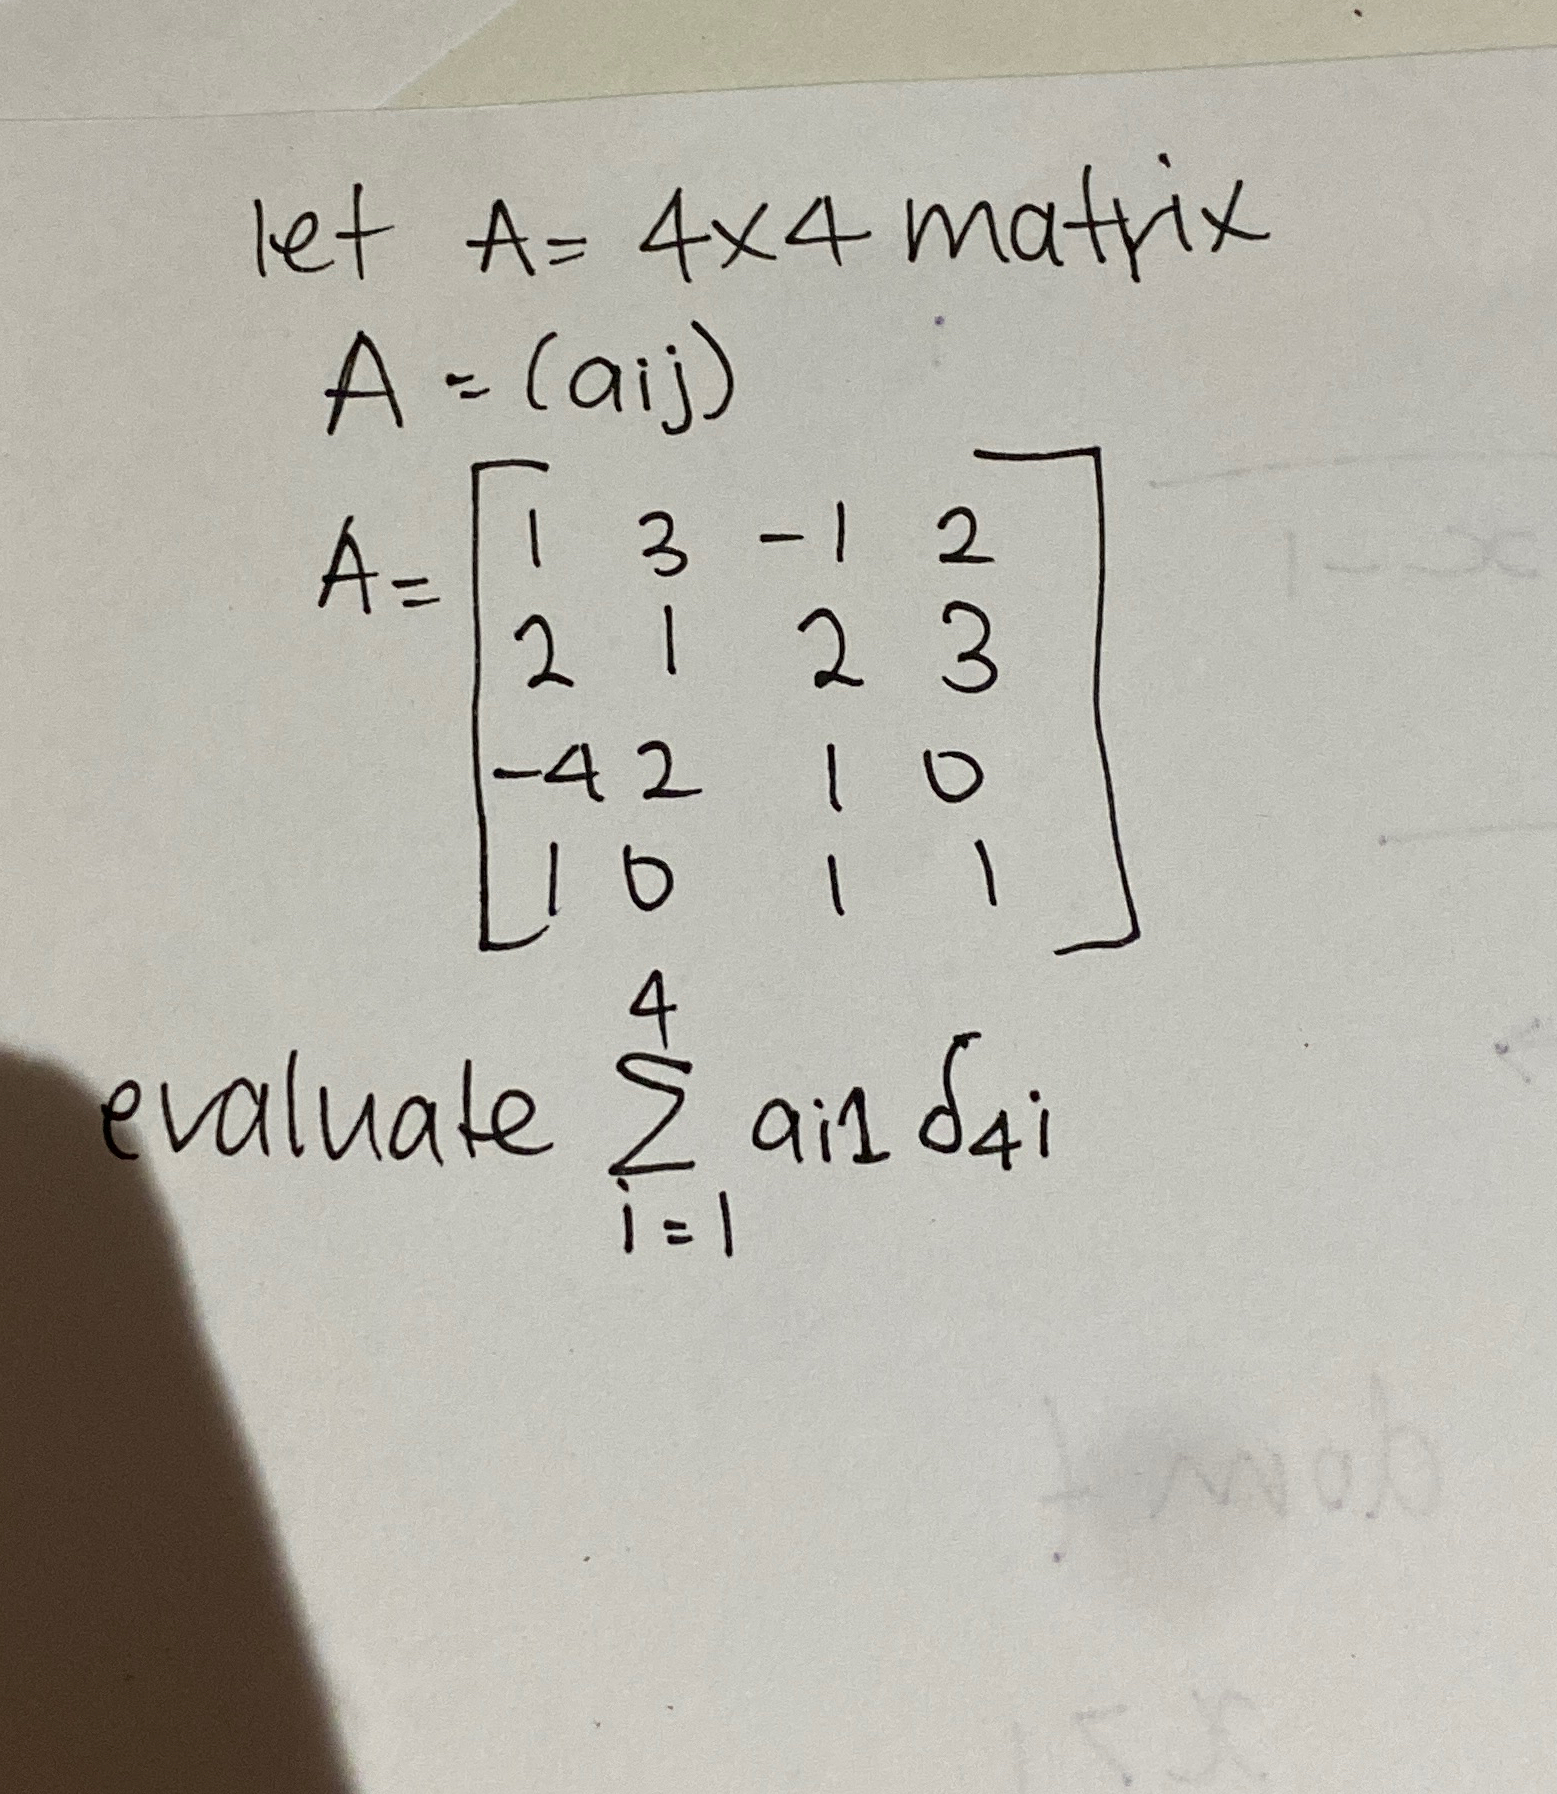 let A= 4x4 matrix
A = (aij)
A= [1 3 -1 2
2 1 2 3
-4 2 1 0
1 0 1 1]
4
evaluate Σ ai1 δ4i
i=1